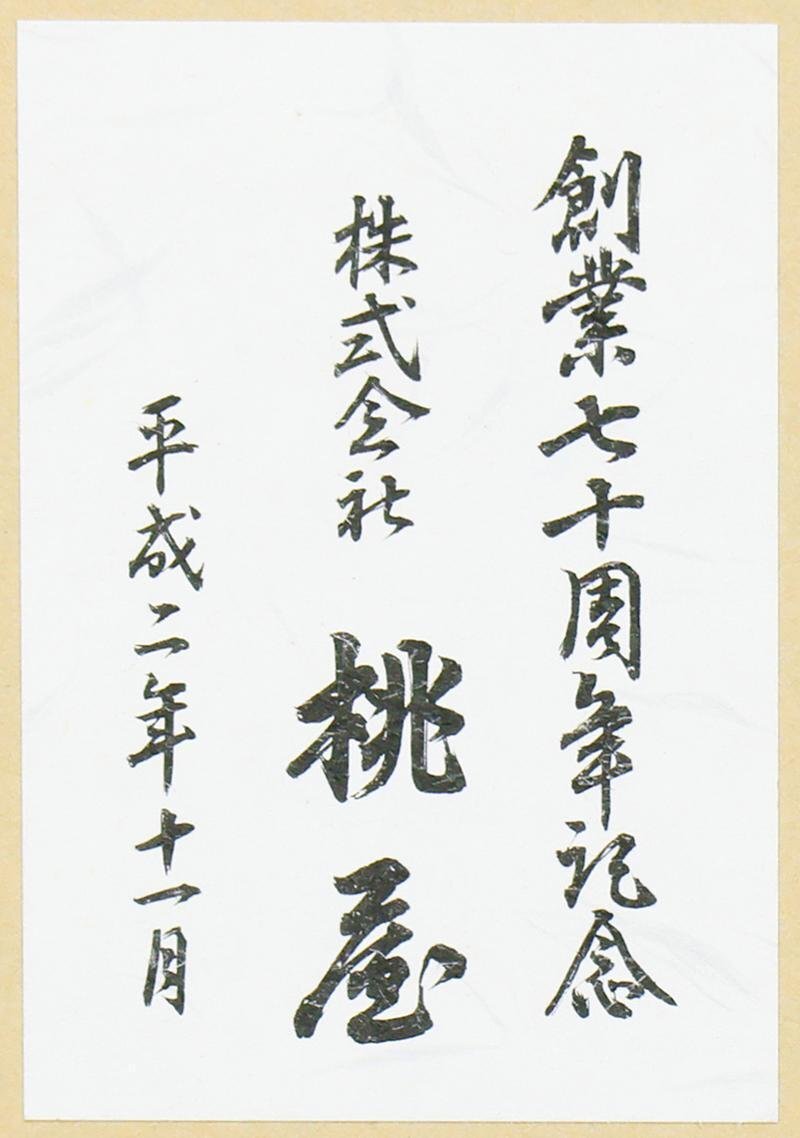 創業七十周年記念
株式会社 桃屋
平成二年十一月